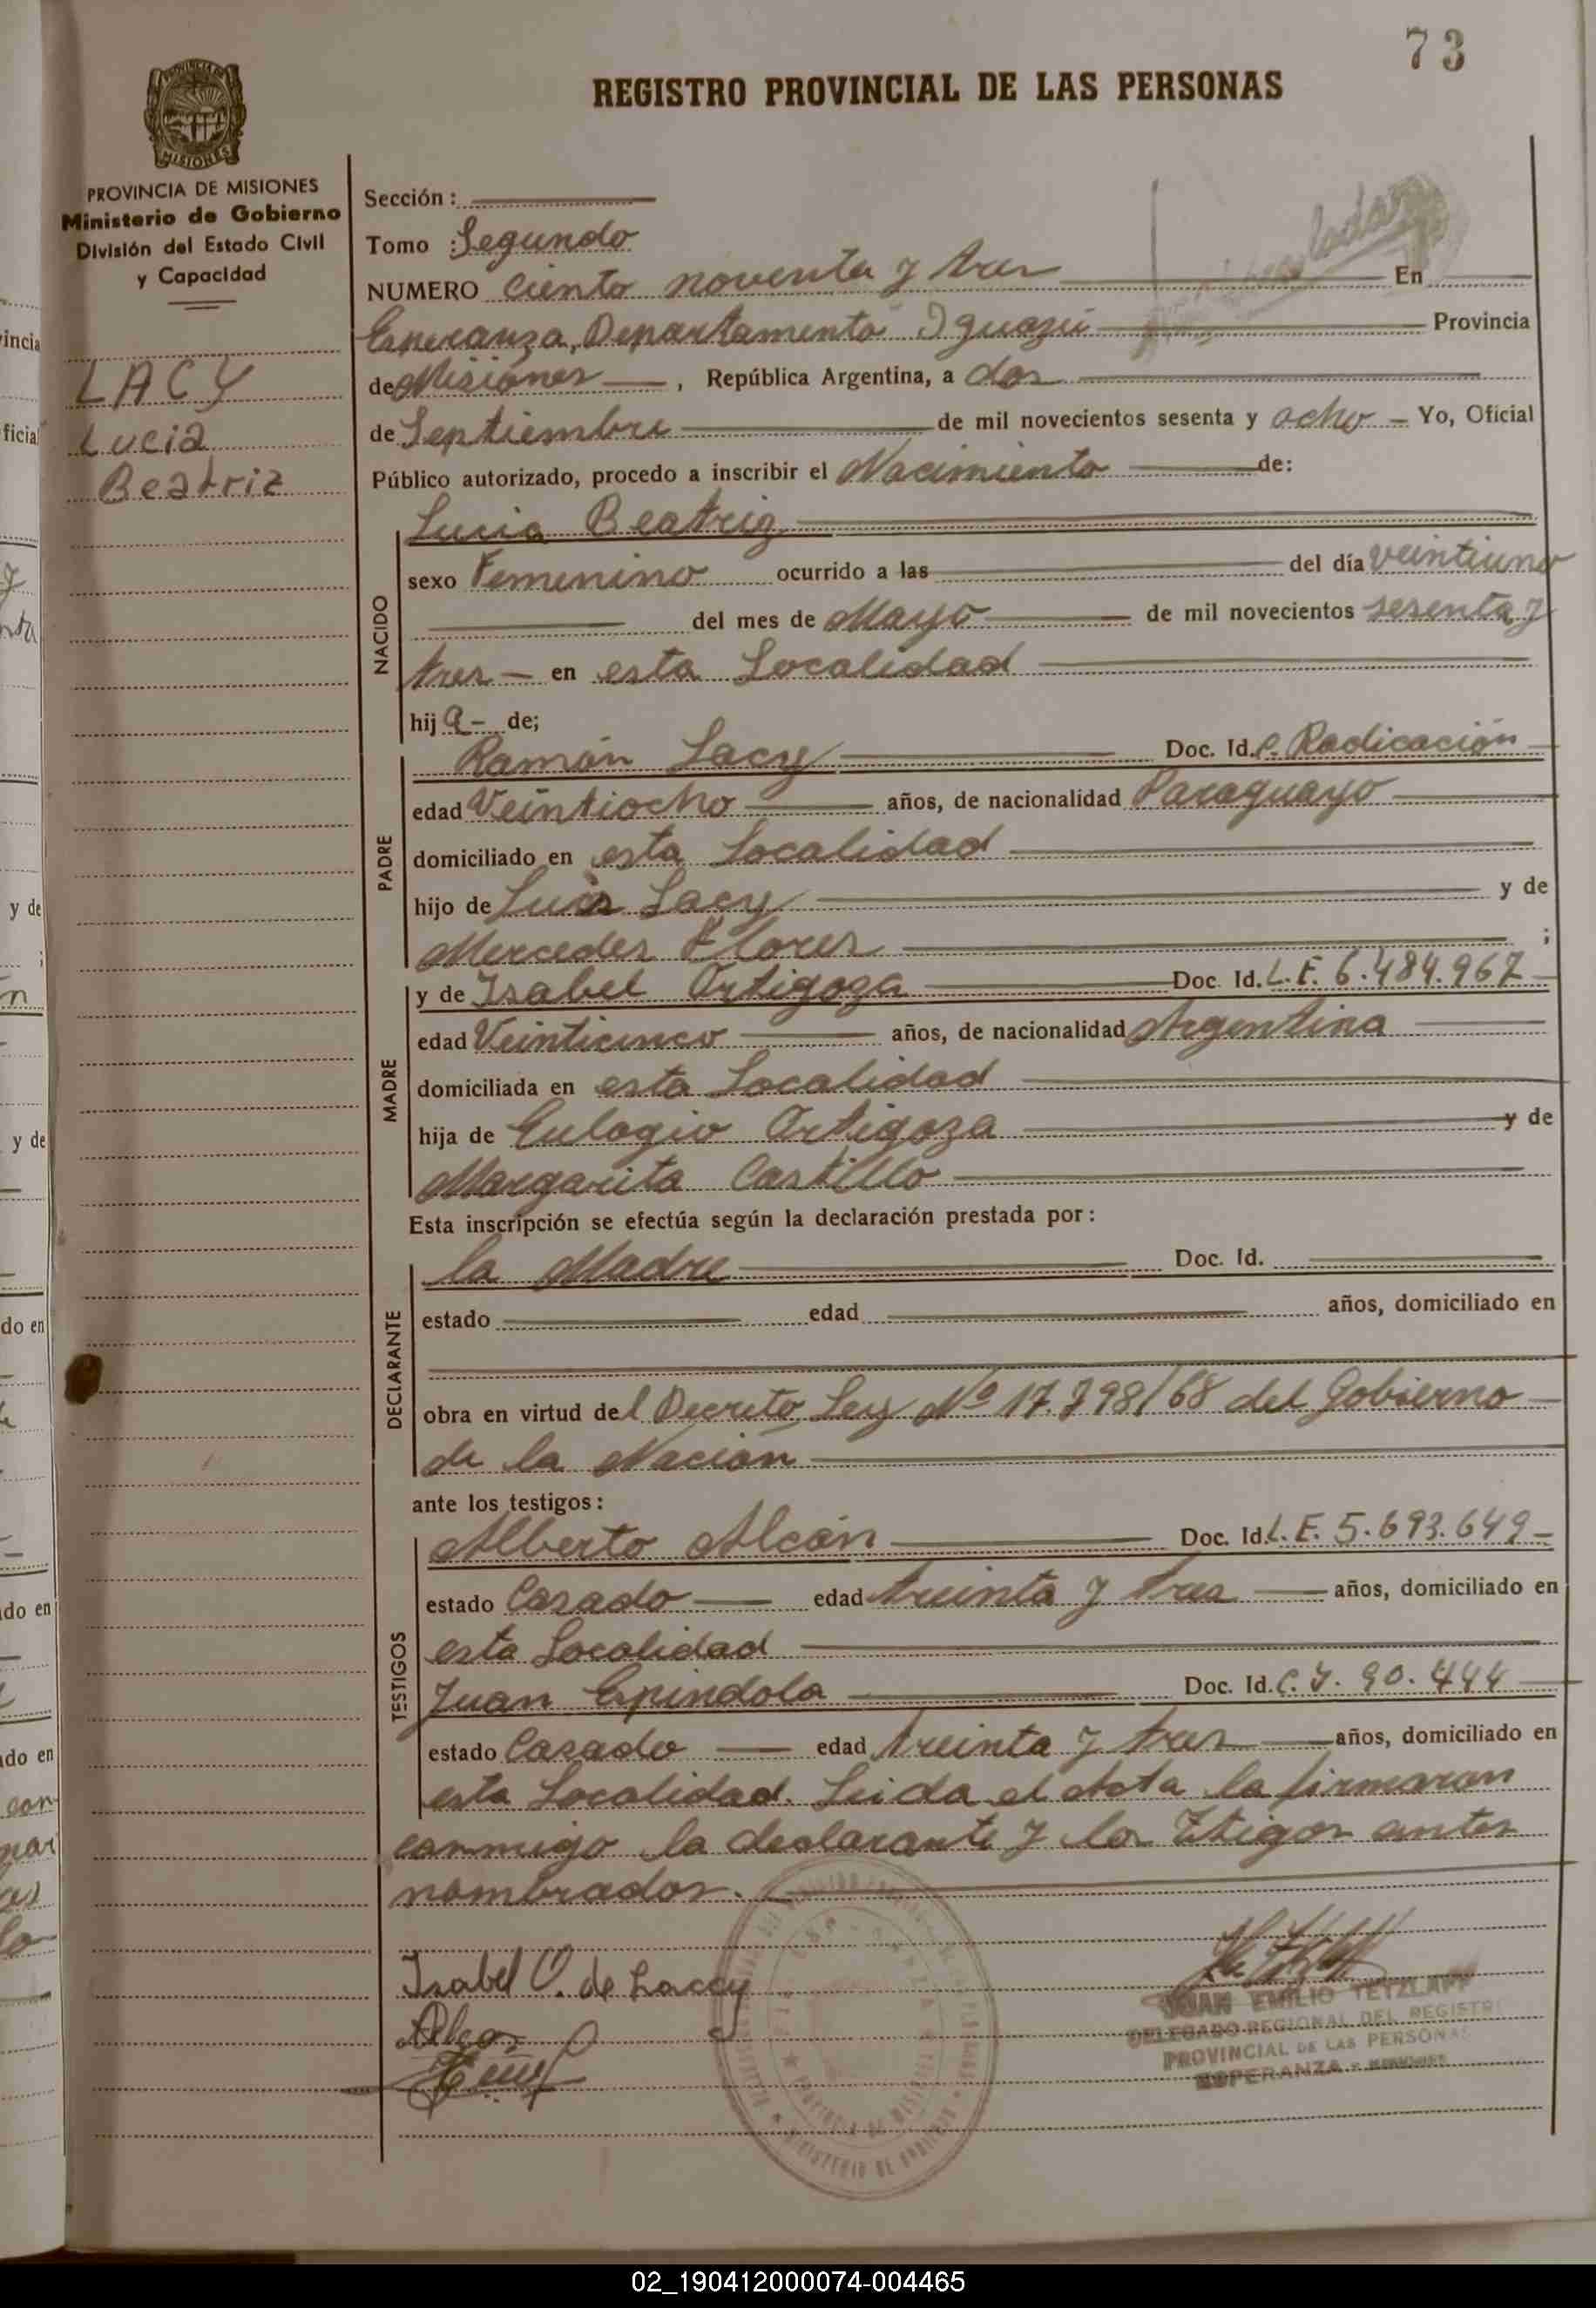 73
REGISTRO PROVINCIAL DE LAS PERSONAS
PROVINCIA DE MISIONES
PROVINCIA DE MISIONES
Ministerio de Gobierno
División del Estado Civil
y Capacidad
LACY
Lucia
Beatriz
Sección :
Tomo : Segundo
NUMERO Ciento noventa y tres En
Esperanza, Departamento Iguazú Provincia
de Misiones , República Argentina, a dos
de Septiembre de mil novecientos sesenta y ocho Yo, Oficial
Público autorizado, procedo a inscribir el Nacimiento de:
NACIDO
Lucia Beatriz
sexo Femenino ocurrido a las del día veintiuno
del mes de Mayo de mil novecientos sesenta y
tres en esta Localidad
hij a de;
PADRE
Ramón Lacy Doc. Id. C. Radicación
edad Veintiocho años, de nacionalidad Paraguayo
domiciliado en esta Localidad
hijo de Luis Lacy y de
Mercedes Flores ;
MADRE
y de Isabel Ortigoza Doc. Id. L.F. 6.484.967
edad Veinticinco años, de nacionalidad Argentina
domiciliada en esta Localidad
hija de Eulogio Ortigoza y de
Margarita Castillo
Esta inscripción se efectúa según la declaración prestada por :
DECLARANTE
la Madre Doc. Id.
estado edad años, domiciliado en
obra en virtud del Decreto Ley Nº 17.798/68 del Gobierno
de la Nación
ante los testigos :
TESTIGOS
Alberto Alcán Doc. Id. L.E. 5.693.649
estado Casado edad treinta y tres años, domiciliado en
esta Localidad
Juan Espindola Doc. Id. C.I. 90.444
estado Casado edad treinta y tres años, domiciliado en
esta Localidad. Leida el Acta la firmaron
conmigo la declarante y los Ttigos antes
nombrados.
Isabel O. de Laccy
JUAN EMILIO TETZLAFF
DELEGADO REGIONAL DEL REGISTRO
PROVINCIAL DE LAS PERSONAS
ESPERANZA - MISIONES
02_190412000074-004465